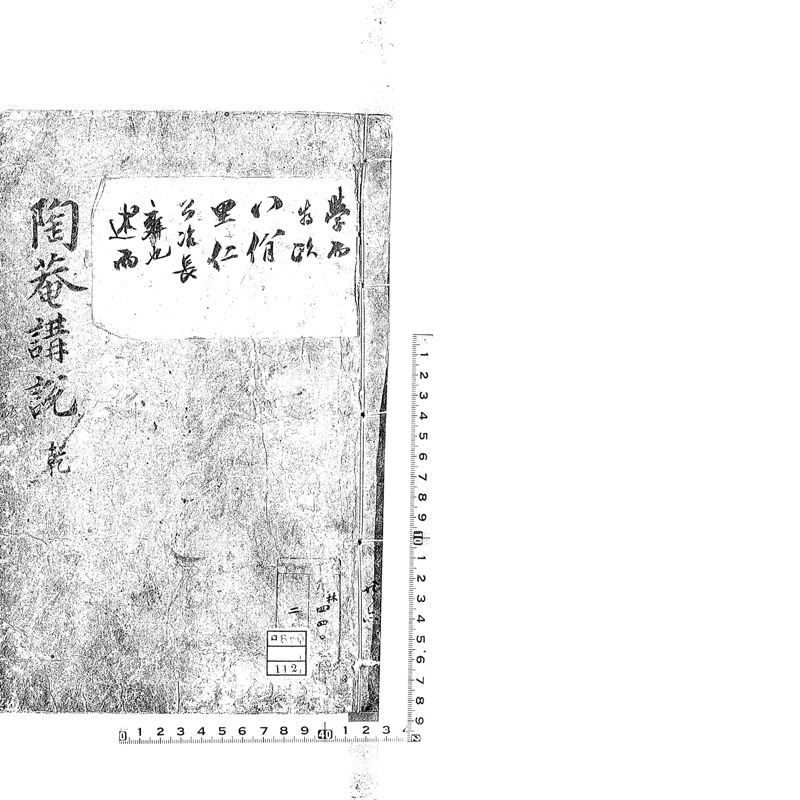 學而
爲政
八佾
里仁
公冶長
雍也
述而
陶菴講說 乾
林
四四〇
二
112
1 2 3 4 5 6 7 8 9 10 1 2 3 4 5 6 7 8 9
0 1 2 3 4 5 6 7 8 9 40 1 2 3